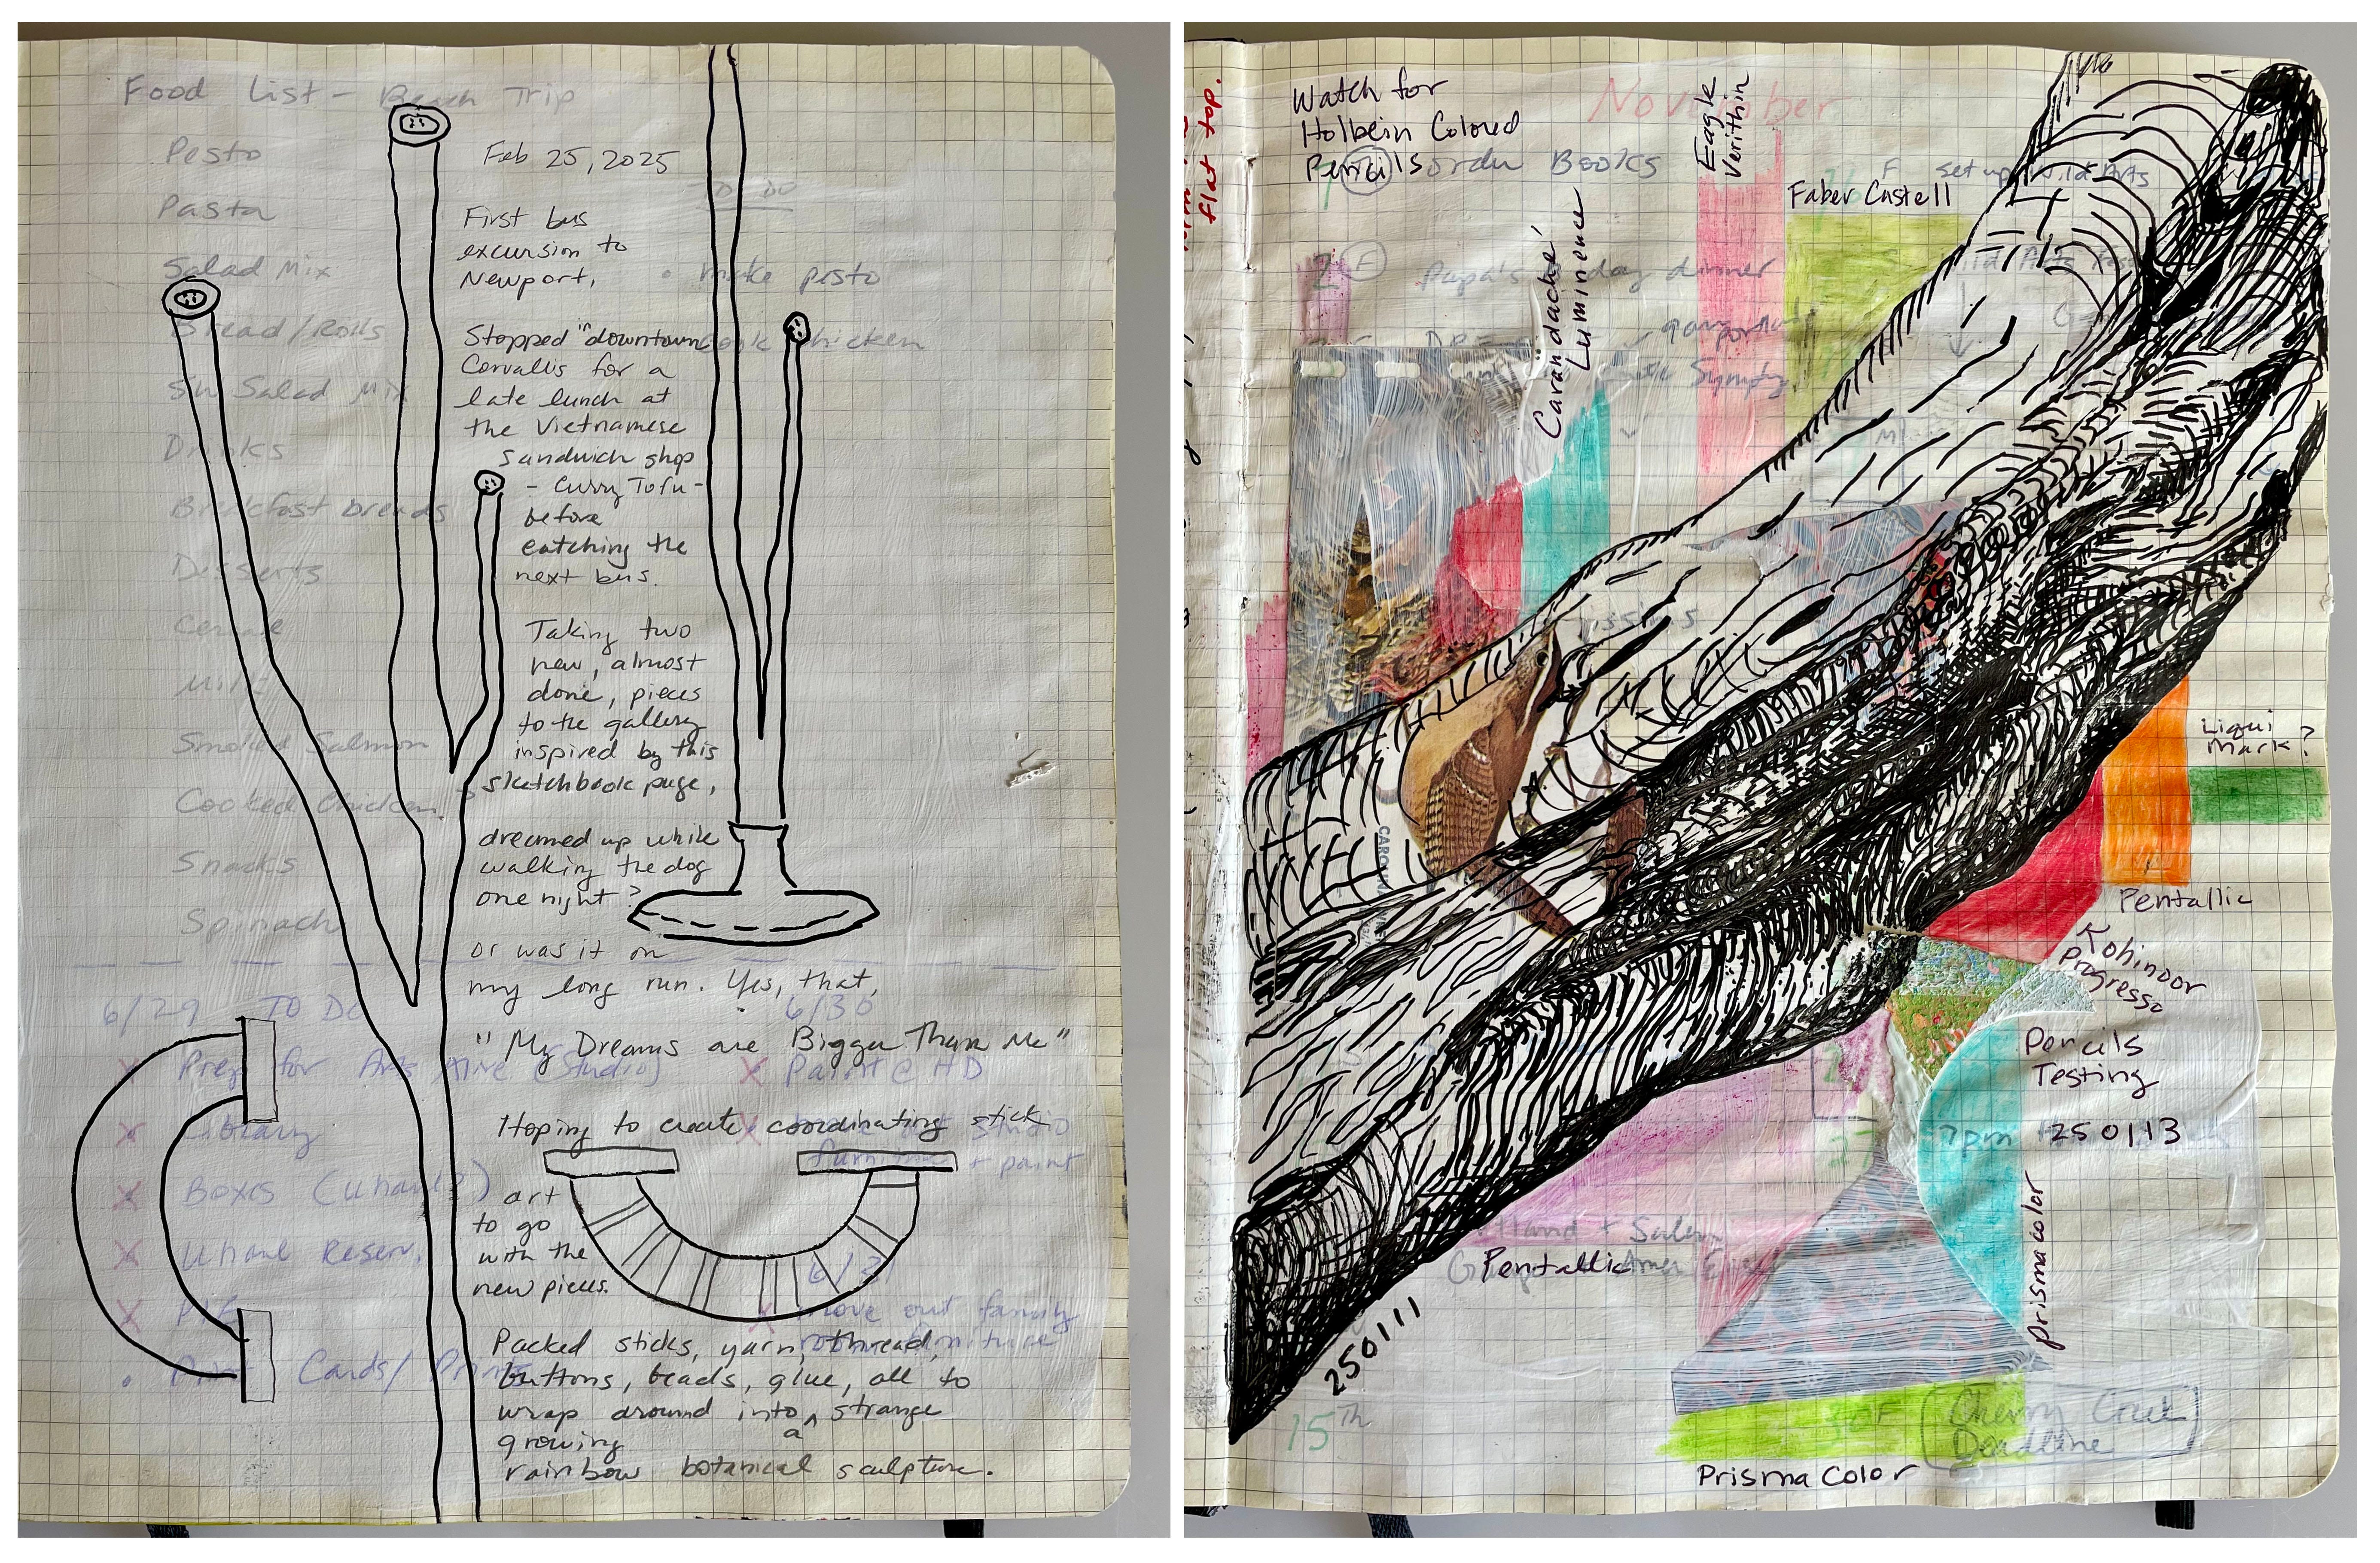 Food List - Beach Trip
Pesto
Pasta
Salad Mix
Bread/Rolls
Salad Mix
Drinks
Breakfast breads
Desserts
Cereal
Milk
Smoked Salmon
Cooked Chicken
Snacks
Spinach
TO DO
make pesto
cook chicken
Feb 25, 2025
First bus
excursion to
Newport,
Stopped "in downtown
Corvallis for a
late lunch at
the Vietnamese
sandwich shop
- Curry Tofu -
before
catching the
next bus.
Taking two
new, almost
done, pieces
to the gallery
inspired by this
sketchbook page,
dreamed up while
walking the dog
one night?
or was it on
my long run. Yes, that,
"My Dreams are Bigger Than Me"
Hoping to create coordinating stick
art
to go
with the
new pieces.
Packed sticks, yarn, thread,
buttons, beads, glue, all to
wrap around into a strange
growing
rainbow botanical sculpture.
6/29 TO DO
X Prep for Arts Alive (Studio)
X Library
X Boxes (Uhaul?)
X Uhaul Reserv.
X
Cards/
6/30
X Paint @ HD
X studio
furniture + paint
6/31
X move out family
room furniture
flat top.
Watch for
Holbein Colored
Pencils
November
order Books
Eagle
Verithin
Faber Castell
F set up Wild Arts
Wild Arts
2 F Papa's day dinner
Carandaché
Luminence
CARO
Liqui
Mark?
Pentallic
Kohinoor
Progresso
Pencils
Testing
7pm 250113
27
prismacolor
Pentallic
250111
15th
Cherry Creek
Deadline
Prisma Color